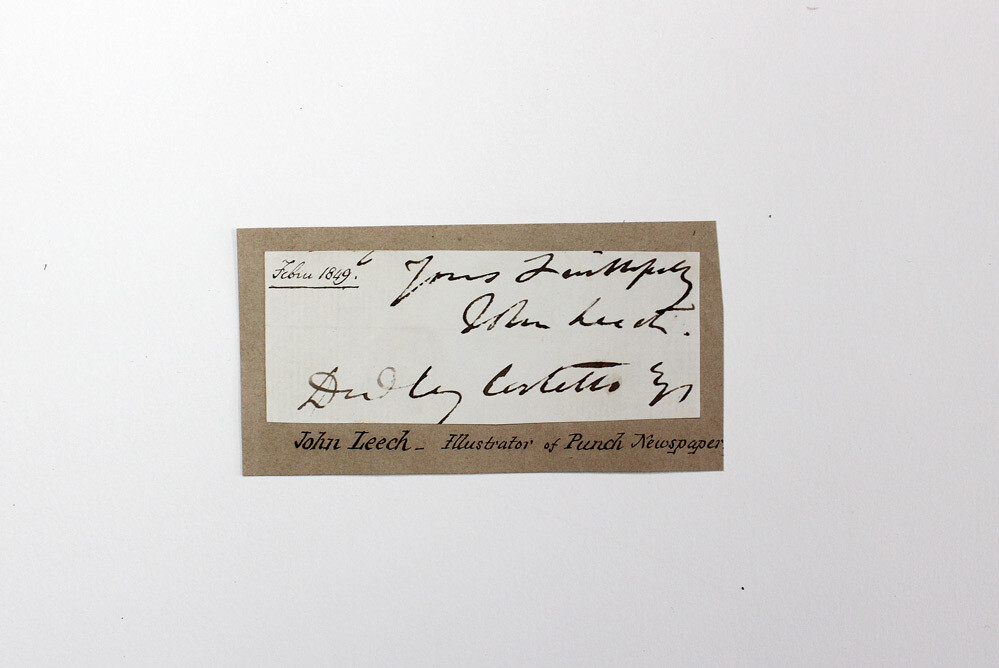 Febru 1849.
Yours Faithfully
John Leech.
Dudley Costello Esq
John Leech - Illustrator of Punch Newspaper